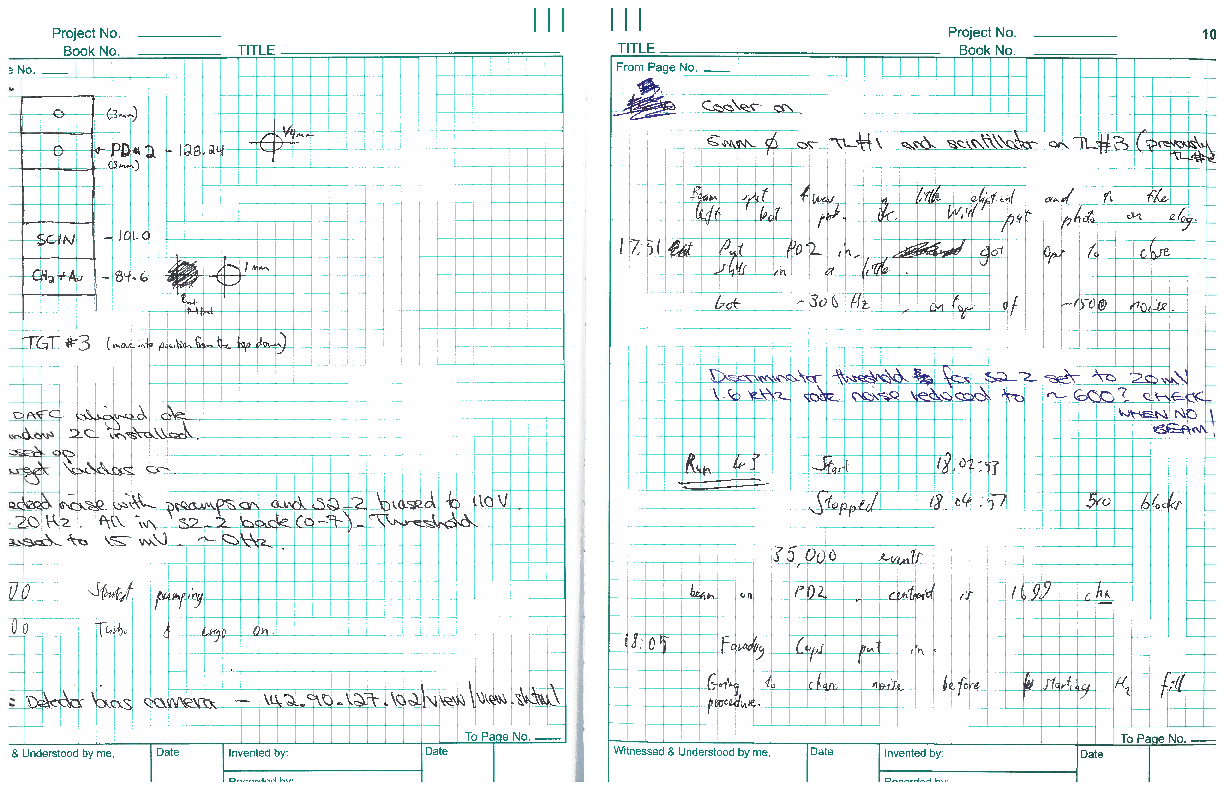 Project No.
Book No. TITLE
No.
(3mm)
← PD#2 - 128.24
(3mm)
1/4mm
SCIN - 101.0
CH2 + Au - 84.6
1mm
TGT #3 (move into position from the top down)
DAFC aligned ok
ndow 2C installed.
sed op
arget ladders on
ecked noise with preamps on and S2-2 biased to 110V
20 Hz. All in S2-2 back (0-7). Threshold
aised to 15 mV. ~0Hz.
00 Started pumping
00 Turbo & cryo on.
: Detector bias camera - 142.90.127.102/view/view.shtml
To Page No.
& Understood by me, Date Invented by: Date
Recorded by:
Project No. 10
TITLE Book No.
From Page No.
Cooler on
5mm ϕ or TL#1 and scintillator on TL#3 (previously
TL#2
Beam spot was little eliptical and in the
left bot put photo on elog.
17:51 Put PD2 in. got ops to close
slits in a little.
Got ~300 Hz, on top of ~1500 noise.
Discriminator threshold for S2-2 set to 20mV
1.6 kHz rate noise reduced to ~600? CHECK
WHEN NO
BEAM!
Run 43 Start 18:02:53
Stopped 18:04:57 blocks
35,000 events
beam on PD2, centroid is 1699 chn
18:05 Faraday Cups put in.
Going to noise before starting H2 fill
procedure.
To Page No.
Witnessed & Understood by me, Date Invented by: Date